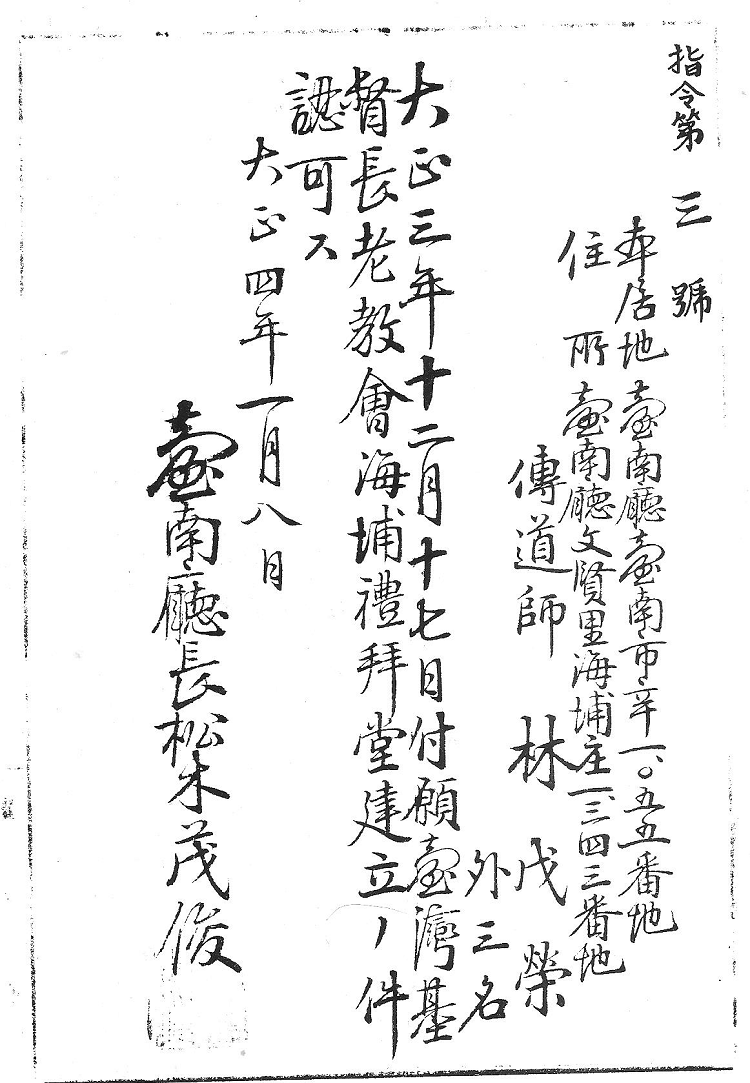 指令第三號
本居地 臺南廳臺南市辛一、〇五五番地
住所 臺南廳文賢里海埔庄一、三四三番地
傳道師 林戊榮
外三名
大正三年十二月十七日付願臺灣基
督長老教會海埔禮拜堂建立ノ件
認可ス
大正四年一月八日
臺南廳長松木茂俊